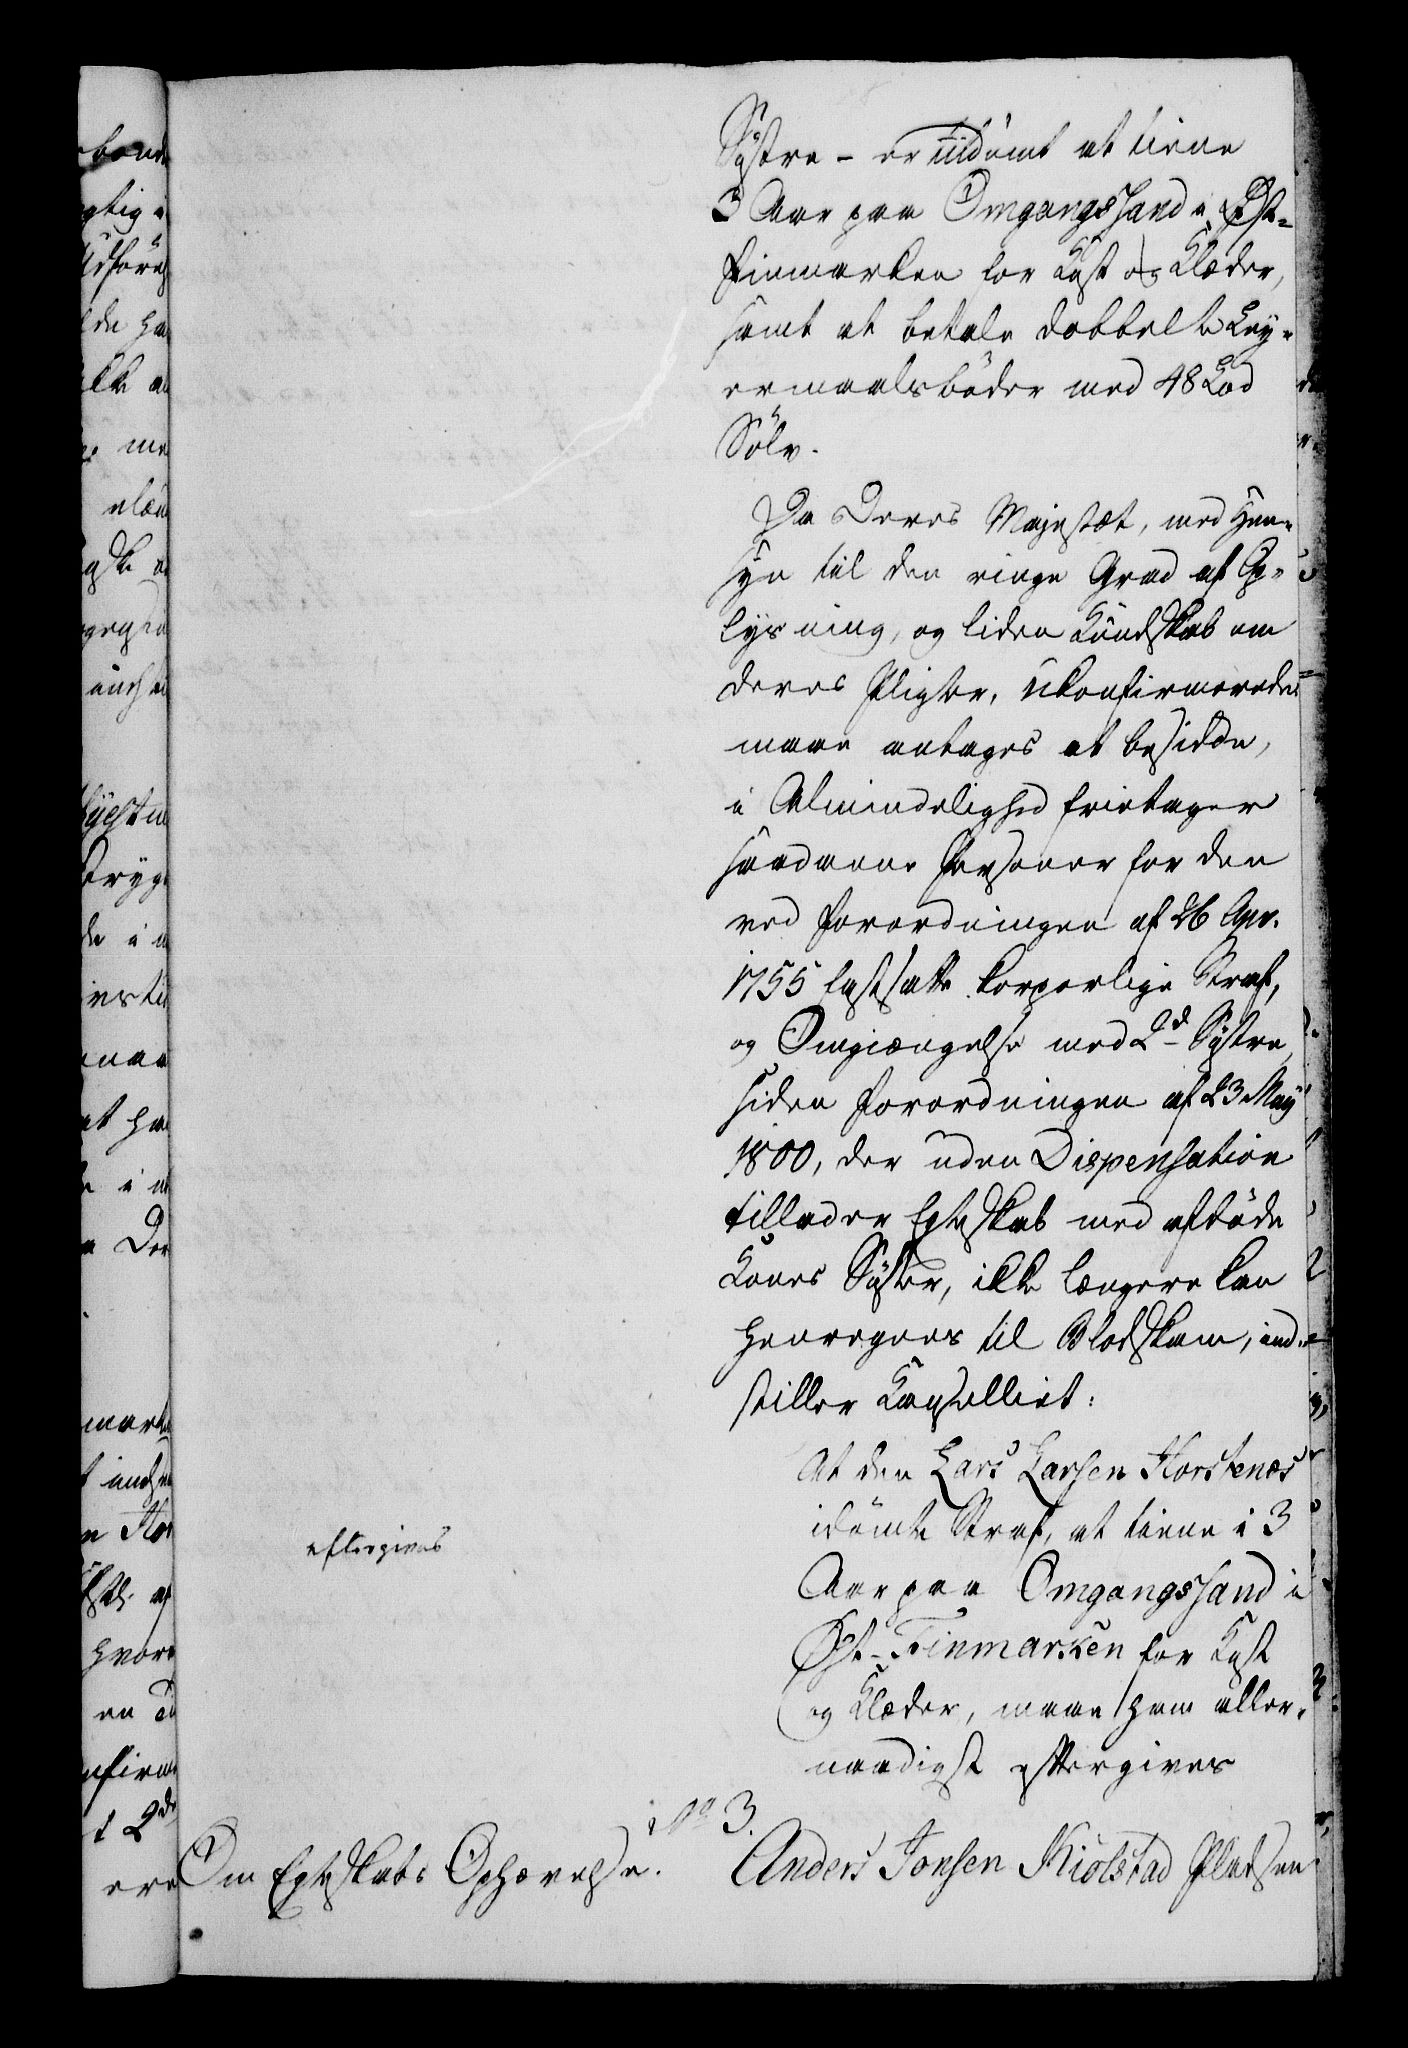 Systre – er idömt at tiene
3 Aar paa Omgangssand i Öst-
Finmarken for Kost og Klæder,
samt at betale dobbelt Ley-
ermaalsböder med 48 Lod
Sölv.
Da Deres Majestæt, med Hen-
syn til den ringe Grad af Op-
lysning, og liden Kundskab om
deres Pligter, ukonfirmerede
maae antages at besidde,
i Almindelighed fritager
saadanne Personer for den
ved Forordningen af 26 Apr.
1755 fastsatte korporlige Straf,
og Omgiængelse med 2de Systre,
siden Forordningen af 23 May
1800, der uden Dispensation
tillader Egteskab med afdöde
Kones Syster, ikke længere kan
henregnes til Blodskam, ind-
stiller Kancelliet:
At den Lars Larsen Horstenæs
idömte Straf, at tiene i 3
Aar paa Omgangssand i
Öst-Finmarken for Kost
og Klæder, maae ham aller-
naadigst eftergives
eftergives
No 3.
Om Egteskabs Ophævelse.
Anders Jonsen Kiölstad Pladsen